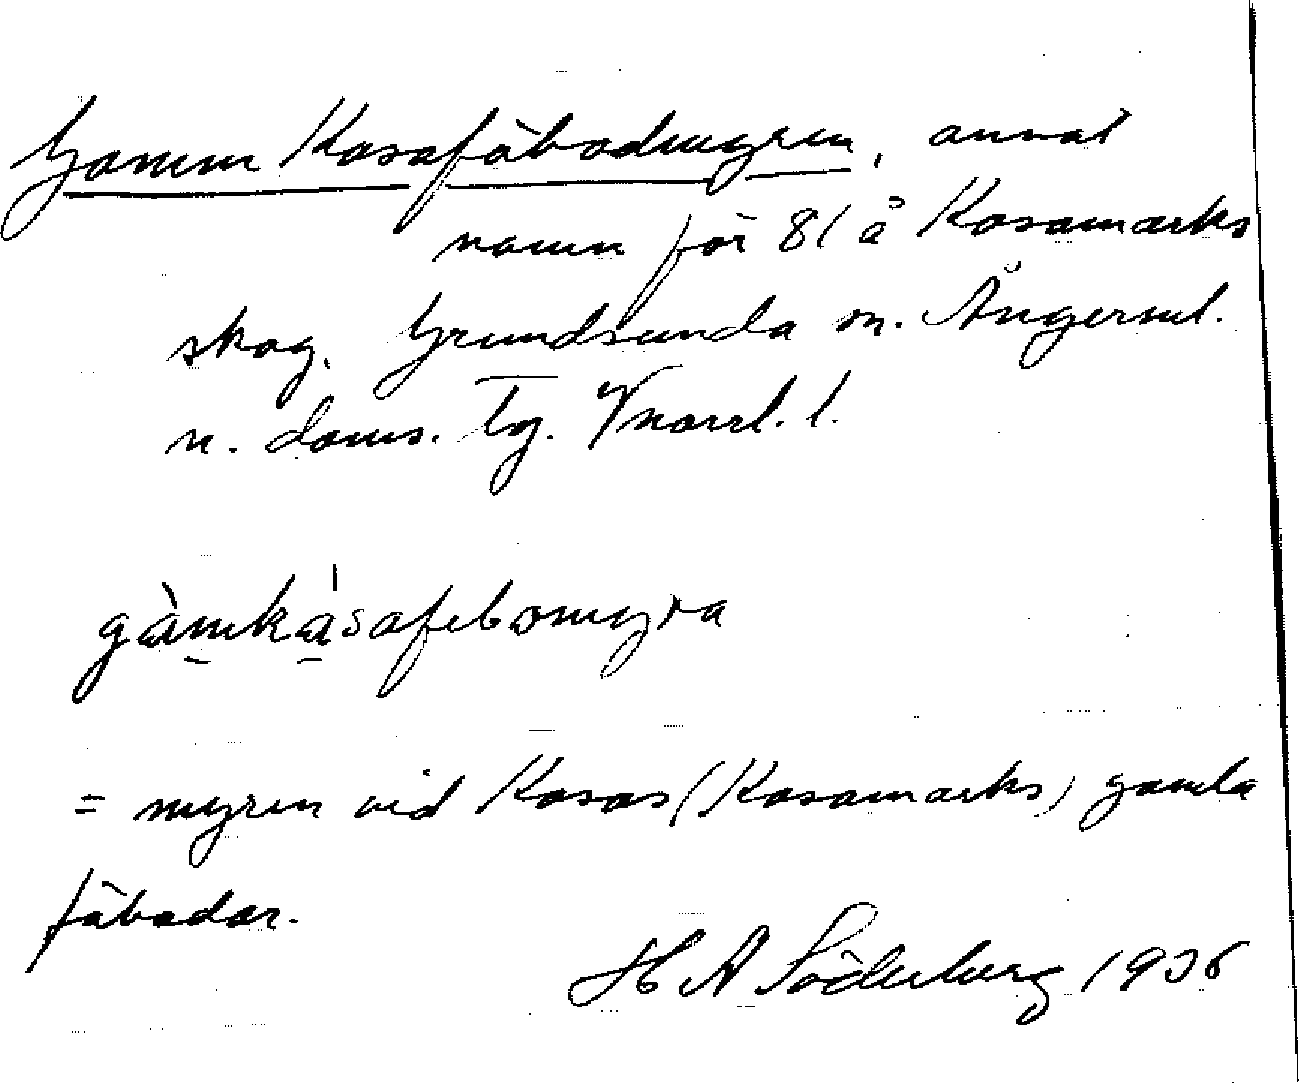 Gamm Kasafäbodmyren, annat
namn för 81 å Kasamarks
skog. Grundsunda sn. Ångerml.
n. doms. tg. Vnorrl. l.
gàmkásafebomyra
= myren vid Kasas (Kasamarks) gamla
fäbodar.
H A Söderberg 1936